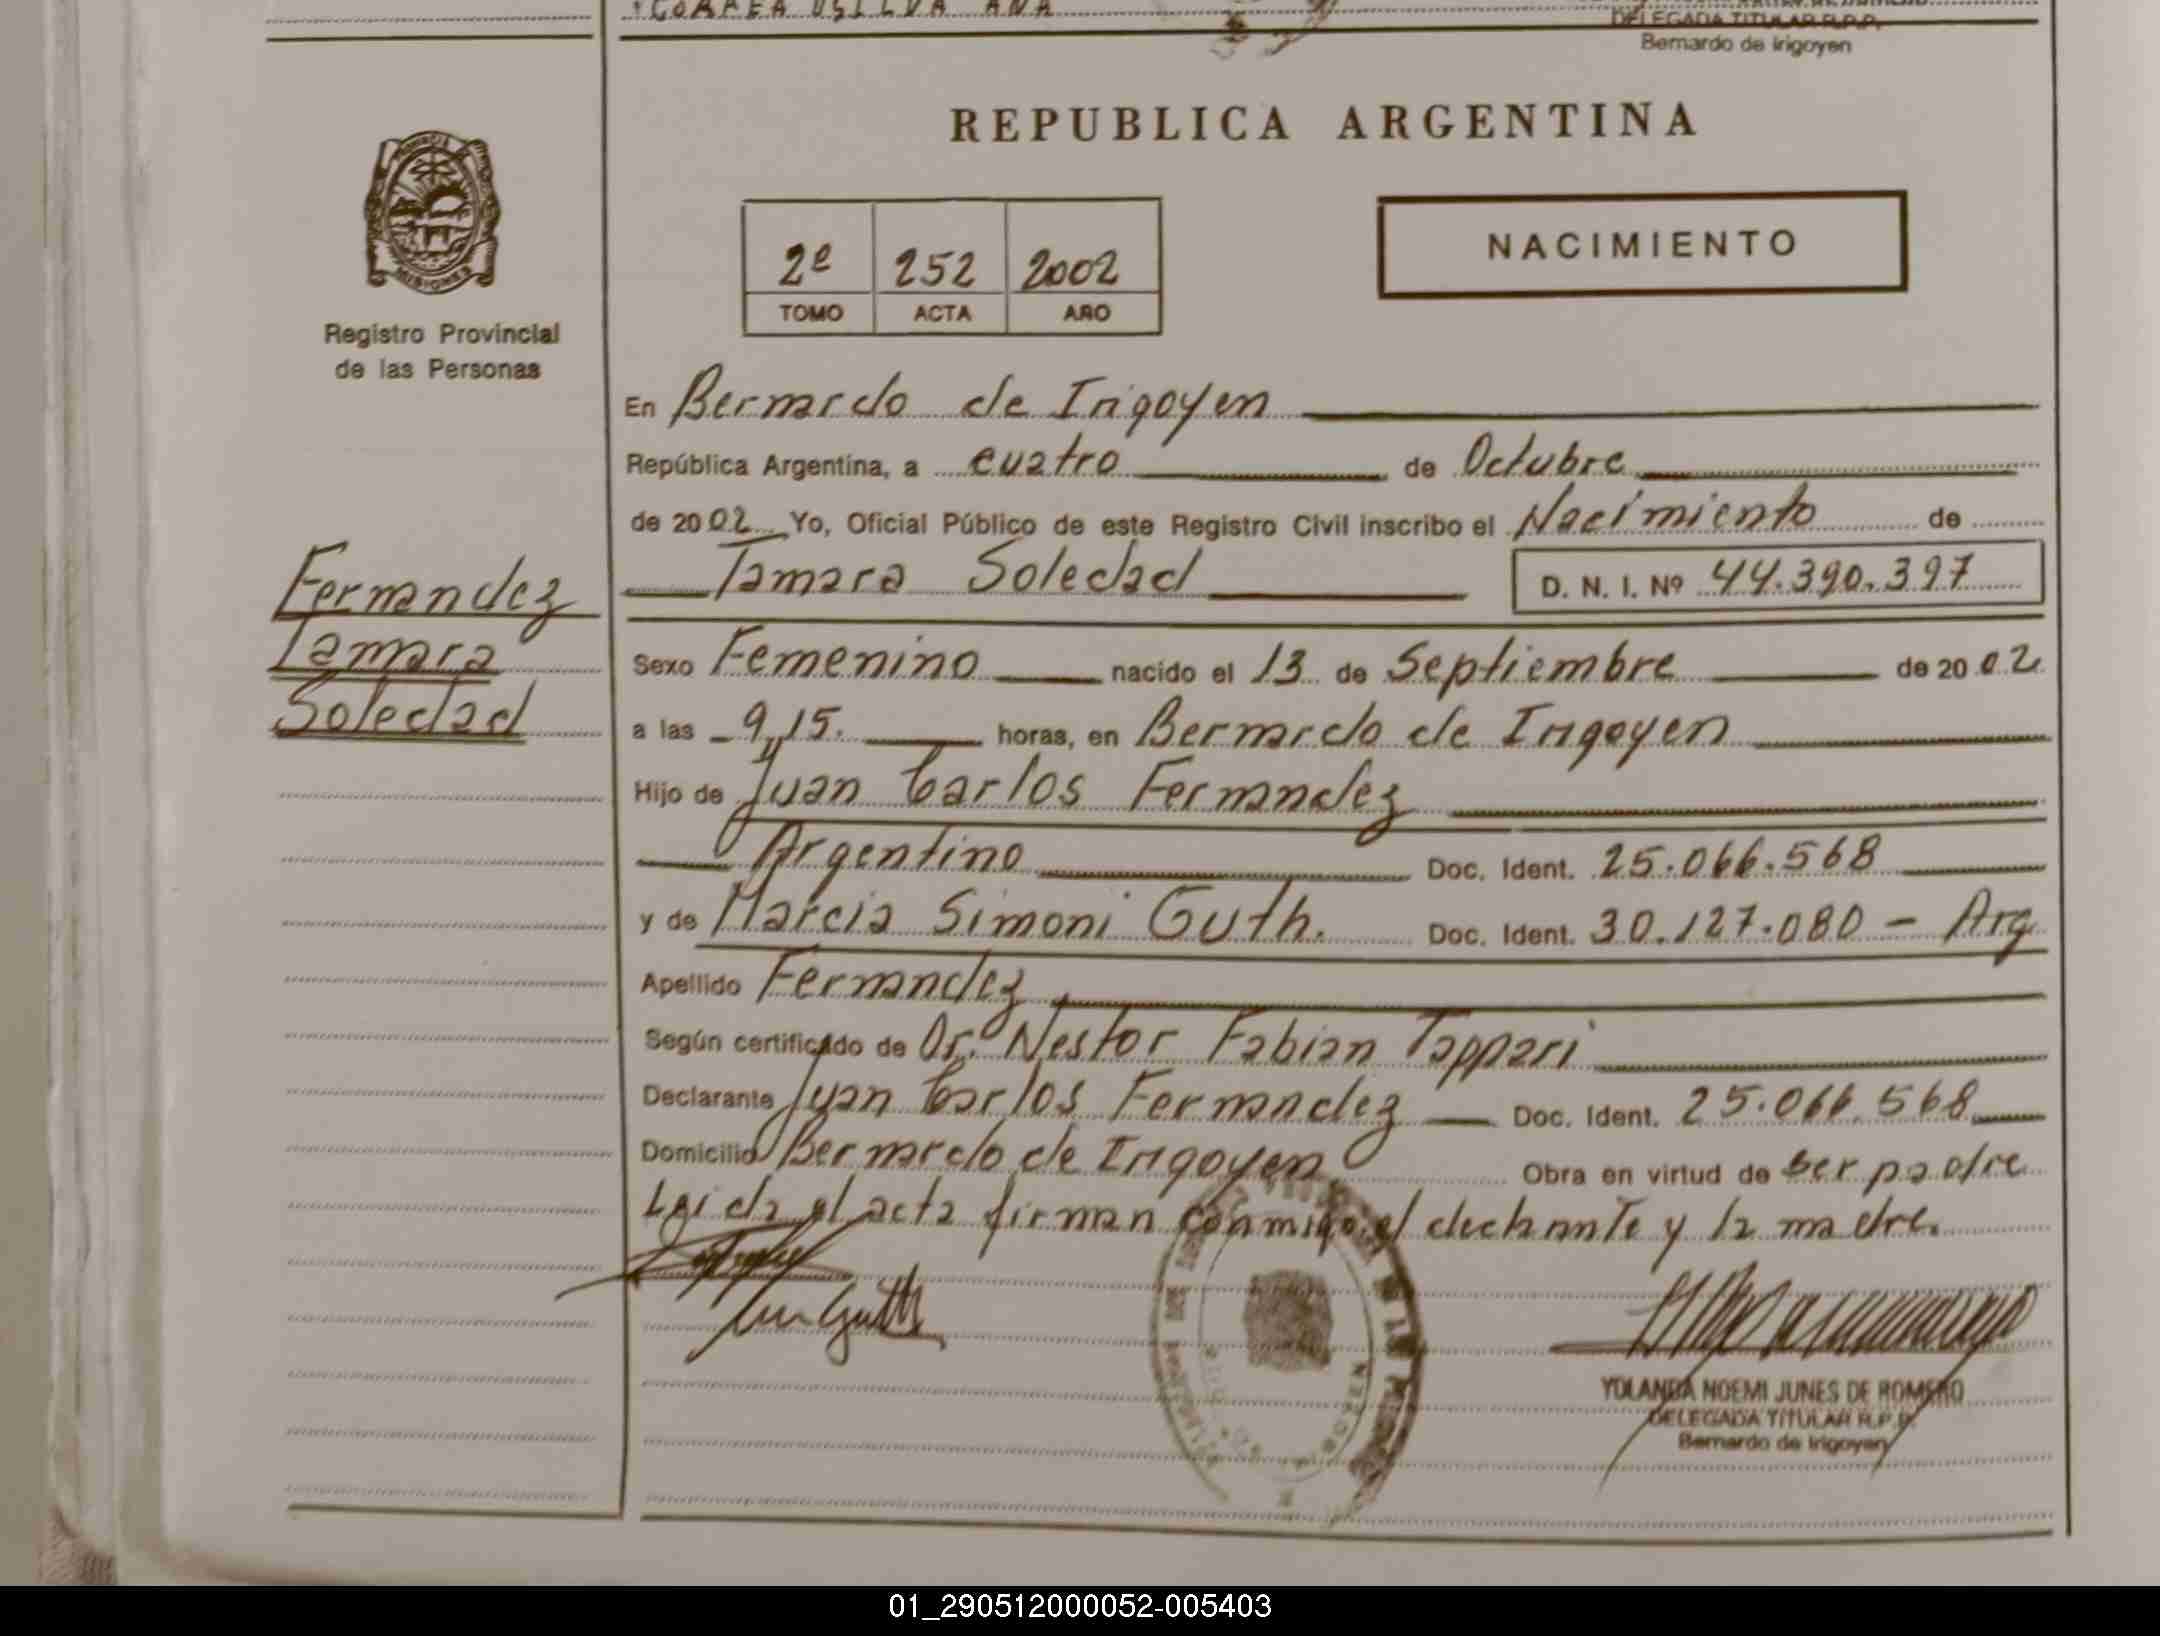 CORREA DSILVA ANA
DELEGADA TITULAR R.P.P.
Bernardo de Irigoyen
REPUBLICA ARGENTINA
NACIMIENTO
2º 252 2002
TOMO ACTA AÑO
MISIONES
Registro Provincial
de las Personas
En Bernardo de Irigoyen
República Argentina, a cuatro de Octubre
de 2002 Yo, Oficial Público de este Registro Civil inscribo el Nacimiento de
Tamara Soledad D. N. I. Nº 44.390.397
Fernandez
Tamara
Soledad
Sexo Femenino nacido el 13 de Septiembre de 2002
a las 9,15. horas, en Bernardo de Irigoyen
Hijo de Juan Carlos Fernandez
Argentino Doc. Ident. 25.066.568
y de Marcia Simoni Guth. Doc. Ident. 30.127.080 - Arg
Apellido Fernandez
Según certificado de Dr. Nestor Fabian Tappari
Declarante Juan Carlos Fernandez Doc. Ident. 25.066.568
Domicilio Bernardo de Irigoyen Obra en virtud de ser padre
Leida el acta firman conmigo el declante y la madre.
YOLANDA NOEMI JUNES DE ROMERO
DELEGADA TITULAR R.P.P.
Bernardo de Irigoyen
01_290512000052-005403